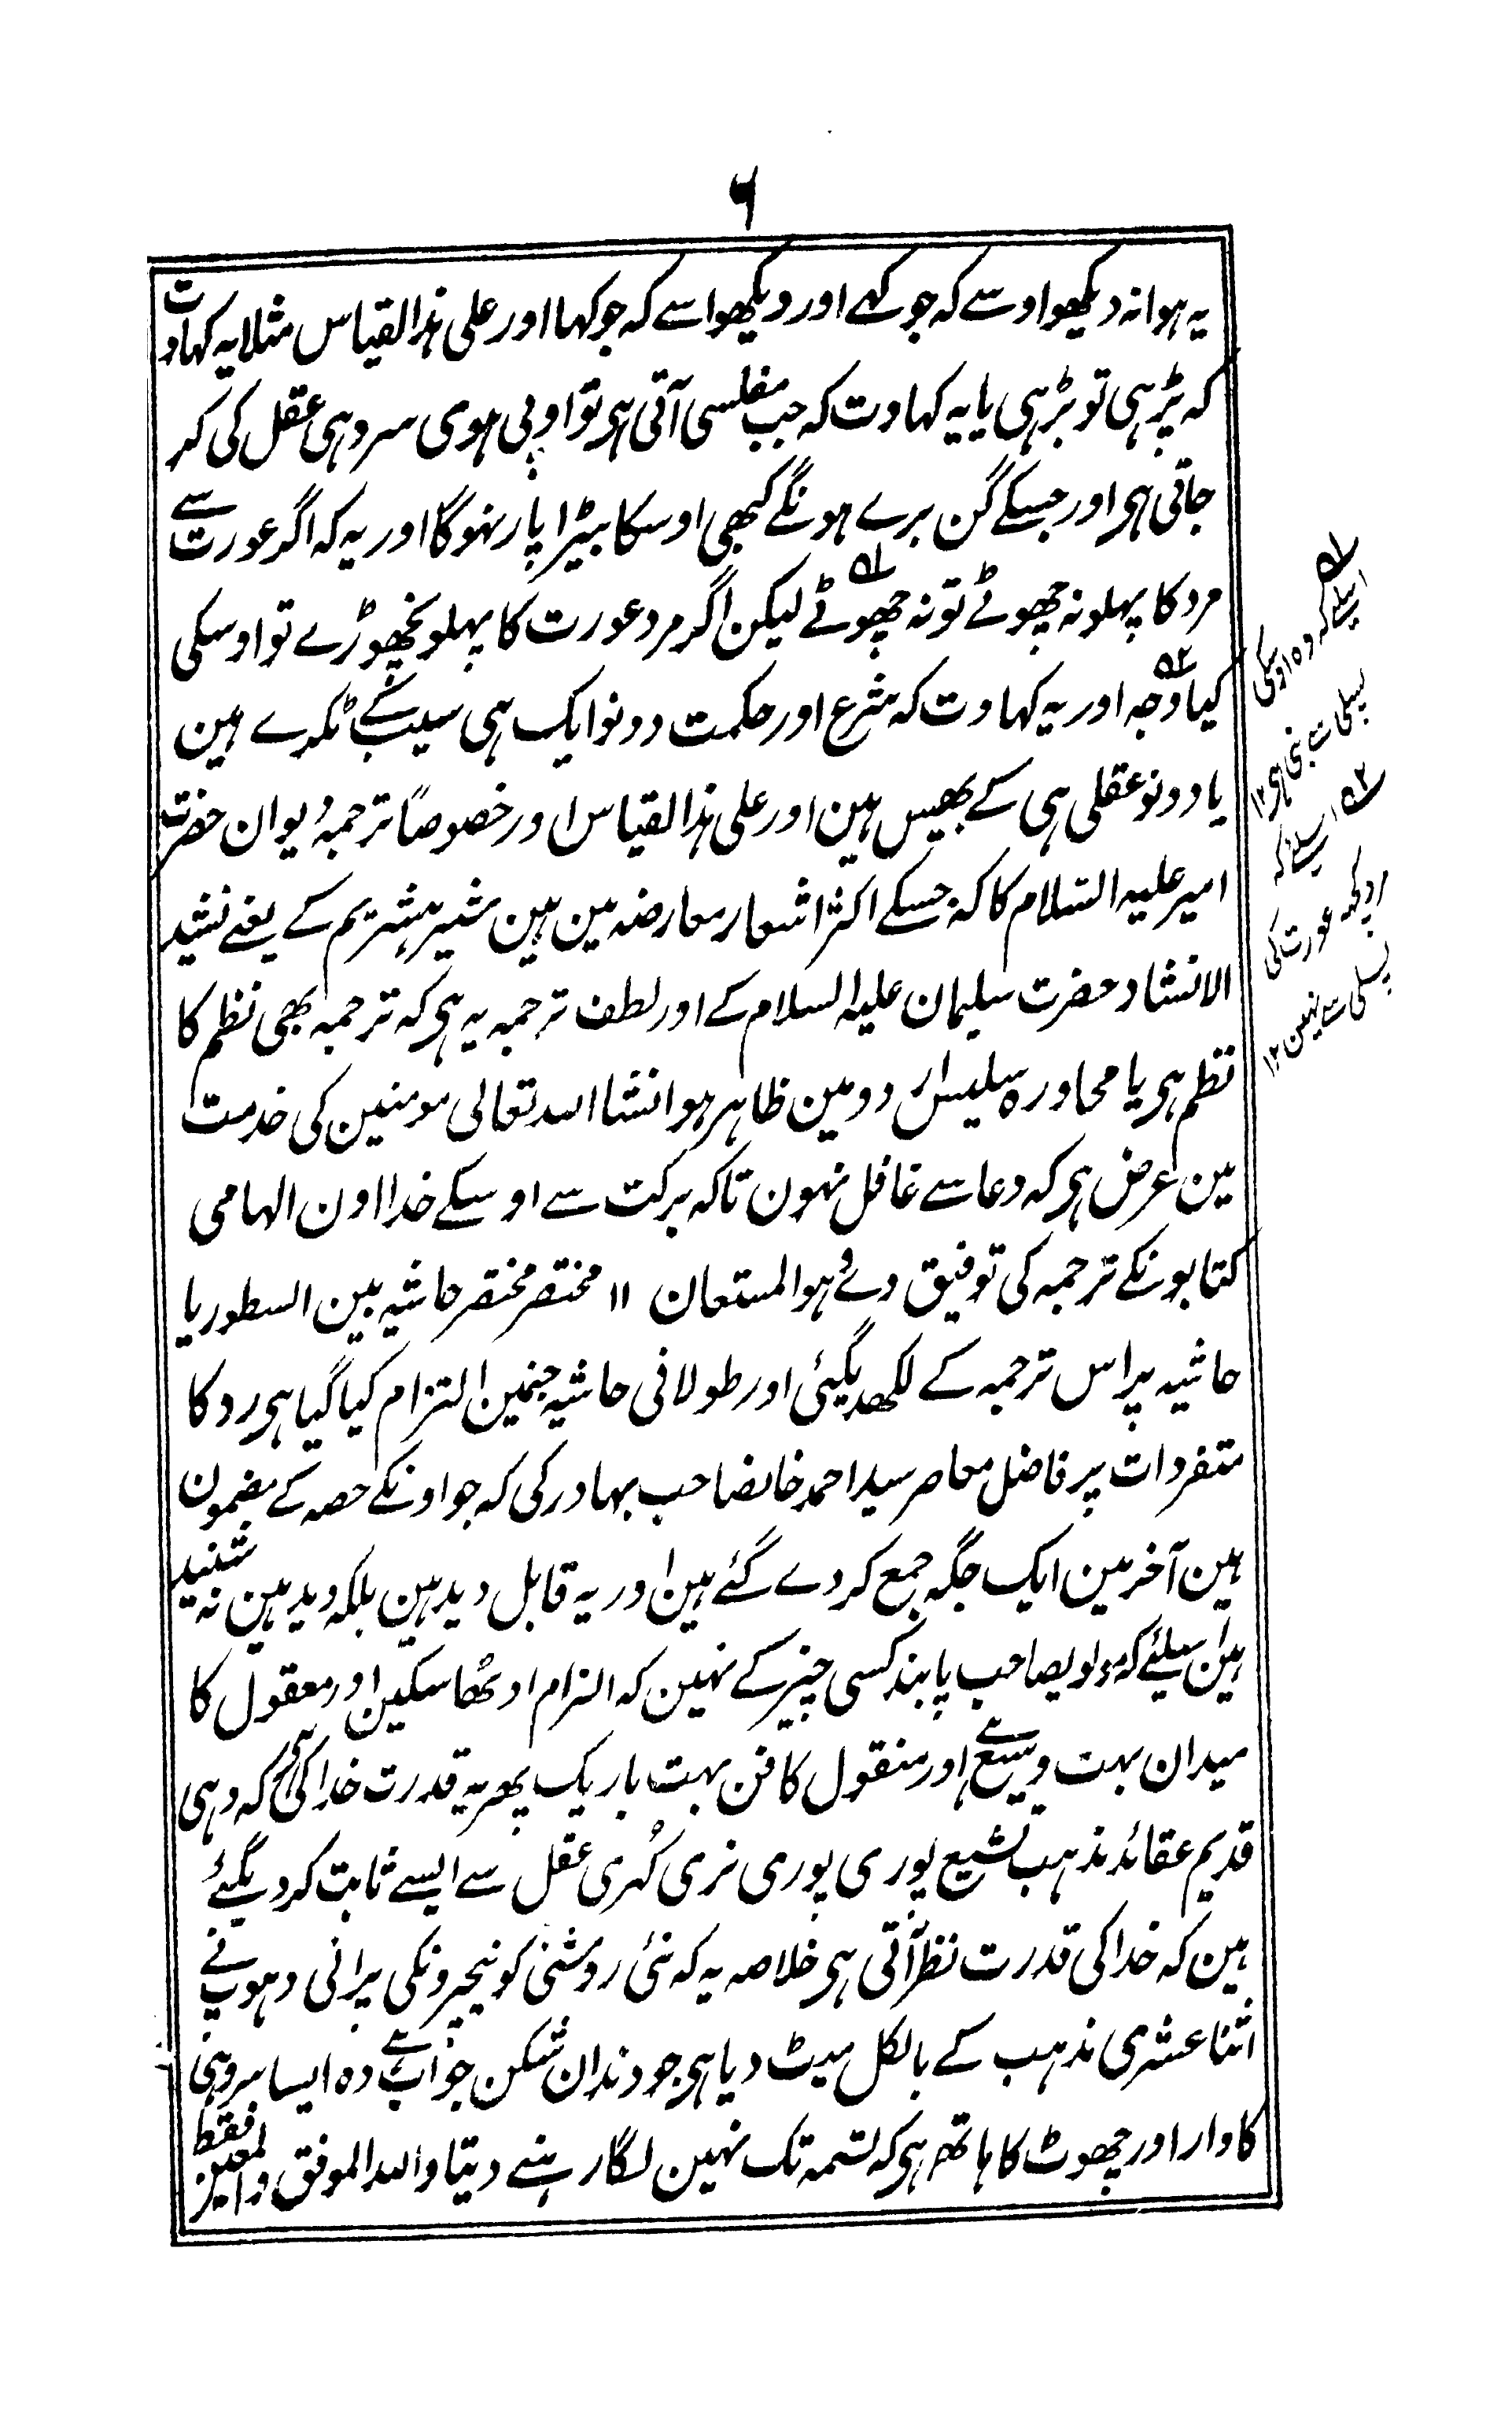 ۶
یہ ہوا نہ دیکھو اوسے کہ جو کہے اور دیکھو اسے کہ جو کہا اور علی ہذا القیاس مثلا یہ کہاوت
کہ پڑہی تو بڑہی یا یہ کہاوت کہ جب مفلسی آتی ہی تو اوپی ہوی سروہی عقل کی کر
جاتی ہی اور جسکے گن برے ہونگے کبھی اوسکا بیڑا پار نہوگا اور یہ کہ اگر عورت سے
مرد کا پہلو نہ چھوٹے تو نہ چھوٹے لیکن اگر مرد عورت کا پہلو نچھوڑے تو اوسکی
کیا وجہ اور یہ کہاوت کہ شرع اور حکمت دونو ایک ہی سیب کے ٹکرے ہین
یا دونو عقلی ہی کے بھیس ہین اور علی ہذا القیاس اور خصوصاً ترجمہ دیوان حضرت
امیر علیہ السّلام کا کہ جسکے اکثر اشعار معارضہ مین ہین شیر ہشتریم کے یعنے نشید
الانشاد حضرت سلیمان علیہ السلام کے اور لطف ترجمہ یہ ہی کہ ترجمہ بھی نظم کا
نظم ہی یا محاورہ سلیس اردو مین ظاہر ہو انشا اللہ تعالی مومنین کی خدمت
مین عرض ہی کہ دعا سے غافل نہون تاکہ برکت سے اوسکے خدا اون الہامی
کتابونکے ترجمہ کی توفیق دے و ہو المستعان ۱۱ مختصر مختصر حاشیہ بین السطور یا
حاشیہ پر اس ترجمہ کے لکھدیگئی اور طولانی حاشیہ جنمین التزام کیا گیا ہی رد کا
متفردات پر فاضل معاصر سید احمد خانصاحب بہادر کی کہ جو اونکے حصہ کے مضمون
ہین آخر مین ایک جگہ جمع کر دے گئے ہین اور یہ قابل دید ہین بلکہ دید ہین نہ شنید
ہین اسلیئے کہ مولویصاحب پابند کسی چیز کے نہین کہ التزام اوٹھا سکین اور معقول کا
میدان بہت وسیع ہے اور منقول کا فن بہت باریک پھر یہ قدرت خدا کی ہی کہ وہی
قدیم عقائد مذہب تشیع پوری پوری نری کُہری عقل سے ایسے ثابت کر دیگئے
ہین کہ خدا کی قدرت نظر آتی ہی خلاصہ یہ کہ نئی روشنی کو نیچرونکی پرانی دہوپ نے
اثنا عشری مذہب کے بالکل میٹ دیا ہی جو دندان شکن جواب ہے وہ ایسا سروہی
کا وار اور چھوٹ کا ہاتھ ہی کہ تسمہ تک نہین لگا رہنے دیتا واللہ الموفق والمعین فقط
۱ہ
اسلیے کہ وہ اوسکی
پسلی سے بنی ہی ۱۲
۲ہ اسلئے کہ
مرد کچھ عورت کی
پسلی سے نہین ۱۲